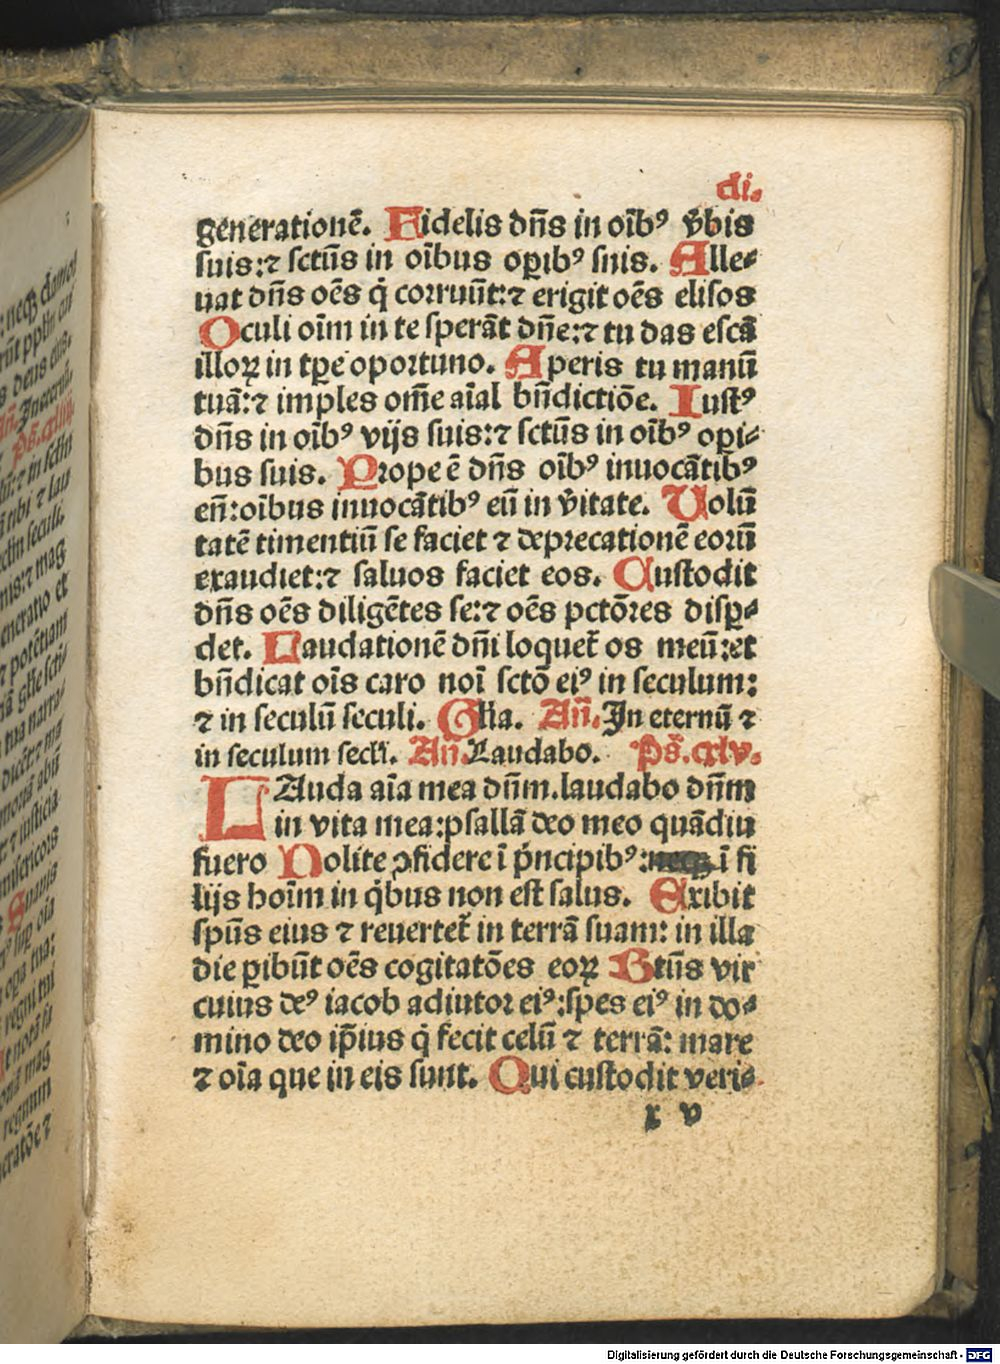 di.
generationē. Fidelis dn̄s in oībꝰ v̄bis
suis:⁊ sctūs in oībus oꝑibꝰ suis. Alle⸗
uat dn̄s oēs q̇ corruūt:⁊ erigit oēs elisos
Oculi oīm in te sperāt dn̄e:⁊ tu das escā
illoꝝ in tꝑe oportuno. Aperis tu manū
tuā:⁊ imples om̄e aīal bn̄dictiōe. Iustꝰ
dn̄s in oībꝰ vijs suis:⁊ sctūs in oībꝰ oꝑi⸗
bus suis. Prope ē dn̄s oībꝰ inuocātibꝰ
eū:oībus inuocātibꝰ eū in v̄itate. Volū
tatē timentiū se faciet ⁊ deprecationē eorū
exaudiet:⁊ saluos faciet eos. Custodit
dn̄s oēs diligētes se:⁊ oēs pctōres disꝑ⸗
det. Laudationē dn̄i loquet̄ os meū:et
bn̄dicat oīs caro noī sctō eiꝰ in seculum:
⁊ in seculū seculi. Gl̄ia. An̄. In eternū ⁊
in seculum secl̄i. An̄. Laudabo. Ps̄. cxlv.
LAuda aīa mea dn̄m.laudabo dn̄m
in vita mea:psallā deo meo quādiu
fuero Nolite ꝯfidere ī pͥncipibꝰ: ī fi
lijs hoīm in qͥbus non est salus. Exibit
spūs eius ⁊ reuertet̄ in terrā suam: in illa
die ꝑibūt oēs cogitatōes eoꝝ Btūs vir
cuius deꝰ iacob adiutor eiꝰ:spes eiꝰ in do⸗
mino deo ip̄ius q̇ fecit celū ⁊ terrā: mare
⁊ oīa que in eis sunt. Qui custodit veri⸗
x v
Digitalisierung gefördert durch die Deutsche Forschungsgemeinschaft - DFG